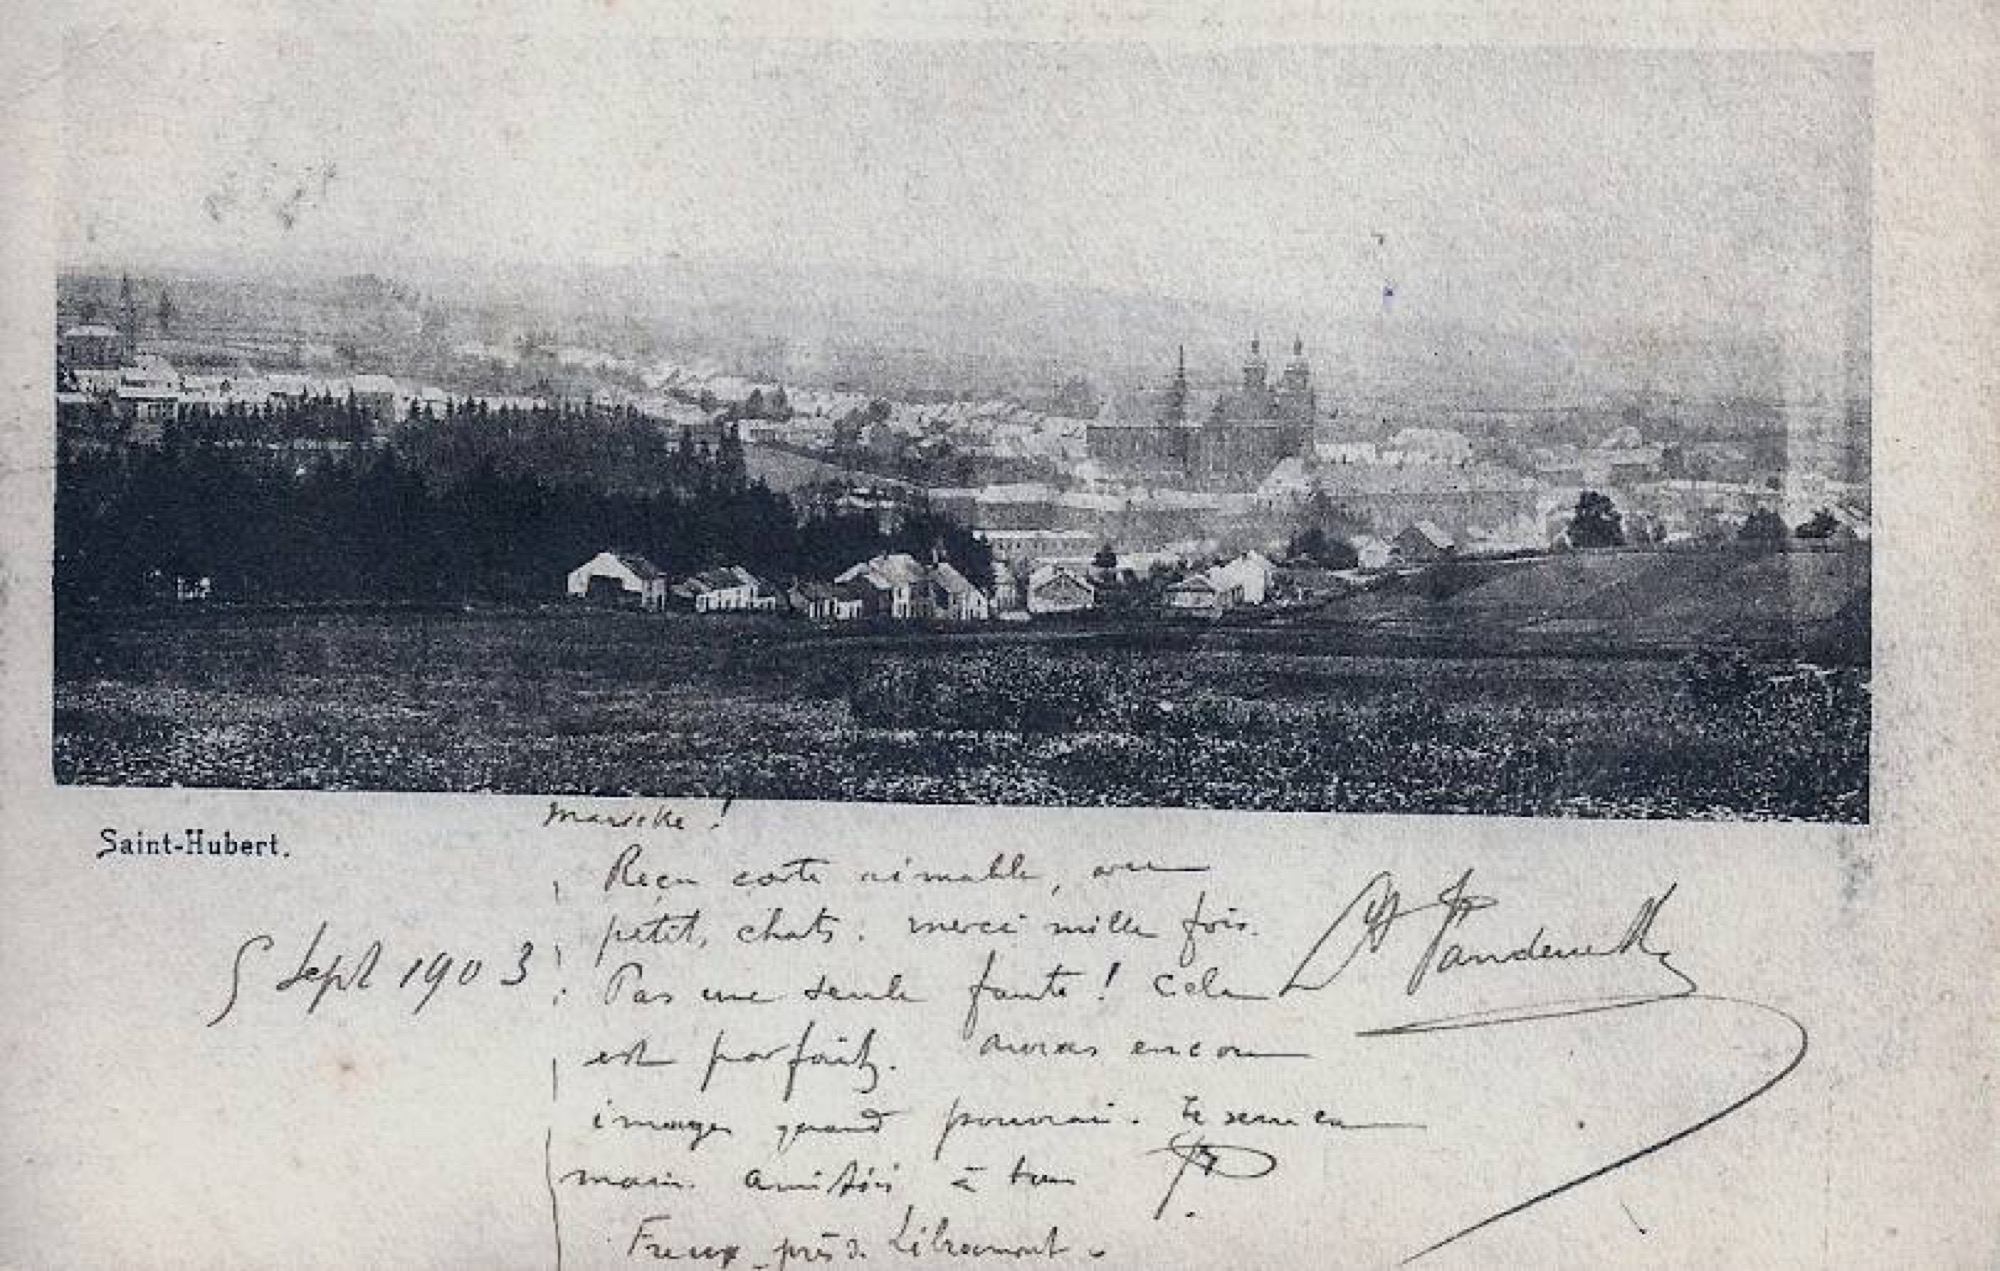 Saint-Hubert.
5 Sept 1903
Mariette!
Reçu carte aimable, avec
petits chats. merci mille fois.
Pas une seule faute! Cela
est parfait. auras encore
images quand pourrai. te serre la
main. amitiés à tous
Freux près de Libramont.